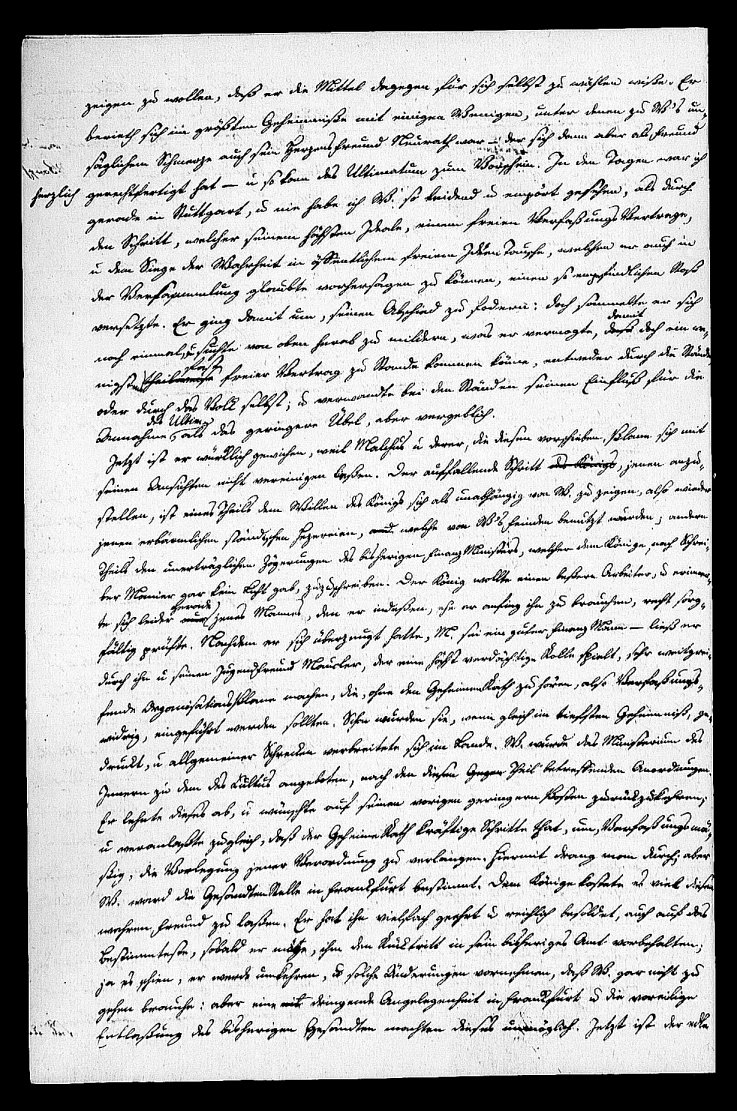 zeigen zu wollen, daß er die Mittel dagegen für sich selbst zu wählen wisse. Er
berieth sich im größten Geheimnisse mit einigen Wenigen, unter denen zu W's un-
säglichem Schmerze auch sein Herzensfreund Neurath war u der sich dann aber als Freund
herzlich gerechtfertigt hat — u so kam das Ultimatum zum Vorschein. In den Tagen war ich
gerade in Stuttgart, u nie habe ich W. so leidend u empört gesehen, als durch
den Schritt, welcher seinem höchsten Ideale, einem freien Verfassungs Vertrage,
u dem Siege der Wahrheit in öffentlichem freien Ideen Tausche, welchen er auch in
der Versammlung glaubte vorhersagen zu können, einen so empfindlichen Stoß
versetzte. Er ging damit um, seinen Abschied zu fodern: doch sammelte er sich
noch einmal, u suchte von oben herab zu mildern, was er vermogte, damit doch ein we-
nigstens theilweise freier Vertrag zu Stande kommen könne, entweder durch die Stände
oder durch das Volk selbst; u verwandte bei den Ständen seinen Einfluß für die
Annahme des Ultim. als das geringere Übel, aber vergeblich.
Jetzt ist er würklich gewichen, weil Malchus u derer, die diesen vorschieben, Plane sich mit
seinen Ansichten nicht vereinigen laßen. Der auffallende Schritt des Königs, jenen anzu-
stellen, ist eines Theils dem Willen des Königs sich als unabhängig von W. zu zeigen, also wieder
jenen erbärmlichen ständischen Hezereien, welche von W's Feinden benutzt wurden; andern
Theils den unerträglichen Zögerungen des bisherigen Finanz Ministers, welcher dem Könige, nach Schrei-
ber Manier gar kein Licht gab, zuzuschreiben. Der König wollte einen bessern Arbeiter, u erinner-
te sich leider gerade jenes Mannes, den er indeßen, eh er anfing ihn zu brauchen, recht sorg-
fältig prüfte. Nachdem er sich überzeugt hatte, M. sei ein guter Finanz Mann — ließ er
durch ihn u seinen Jugendfreund Maucler, der eine höchst verdächtige Rolle spielt, sehr weitgrei-
fende Organisations Plane machen, die, ohne den Geheimen Rath zu hören, also Verfassungs-
widrig, eingeführt werden sollten. Schon wurden sie, wenn gleich im tiefsten Geheimniß, ge-
druckt, u allgemeiner Schrecken verbreitete sich im Lande. W. wurde das Ministerium des
Innern zu dem des Kultus angeboten, nach den diesen Theil betreffenden Anordnungen.
Er lehnte dieses ab, u wünschte auf seinen vorigen geringern Posten zurückzukehren;
u veranlaßte zugleich, daß der Geheime Rath kräftige Schritte that, um, Verfassungsmä-
ßig, die Vorlegung jener Verordnung zu verlangen. Hiermit drang man durch; aber
W. ward die Gesandten Stelle in Frankfurt bestimmt. Dem Könige kostete es viel diesen
wahren Freund zu laßen. Er hat ihn vielfach geehrt u reichlich besoldet, auch auf das
Bestimmteste, sobald er möge, ihm den Rücktritt in sein bisheriges Amt vorbehalten;
ja es schien, er werde umkehren, u solche Änderungen vornehmen, daß W. gar nicht zu
gehen brauche: aber eine dringende Angelegenheit in Frankfurt u die voreilige
Entlaßung des bisherigen Gesandten machten dieses unmöglich. Jetzt ist der edle